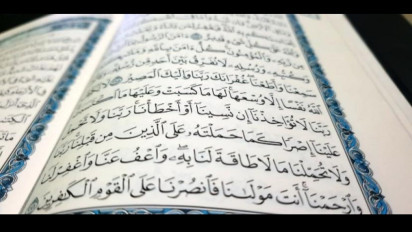 وَٱلْمُؤْمِنُونَ كُلٌّ ءَامَنَ
وَكُتُبِهِۦ وَرُسُلِهِۦ لَا نُفَرِّقُ بَيْنَ أَحَدٍ مِّن
سَمِعْنَا وَأَطَعْنَا غُفْرَانَكَ رَبَّنَا وَإِلَيْكَ ٱلْمَصِيرُ
ٱللَّهُ نَفْسًا إِلَّا وُسْعَهَا لَهَا مَا كَسَبَتْ وَعَلَيْهَا مَا ٱكْتَسَبَتْ
رَبَّنَا لَا تُؤَاخِذْنَآ إِن نَّسِينَآ أَوْ أَخْطَأْنَا رَبَّنَا وَلَا تَحْمِلْ
عَلَيْنَآ إِصْرًا كَمَا حَمَلْتَهُۥ عَلَى ٱلَّذِينَ مِن قَبْلِنَا رَبَّنَا
وَلَا تُحَمِّلْنَا مَا لَا طَاقَةَ لَنَا بِهِۦ وَٱعْفُ عَنَّا وَٱغْفِرْ لَنَا
وَٱرْحَمْنَآ أَنتَ مَوْلَىٰنَا فَٱنصُرْنَا عَلَى ٱلْقَوْمِ ٱلْكَٰفِرِينَ